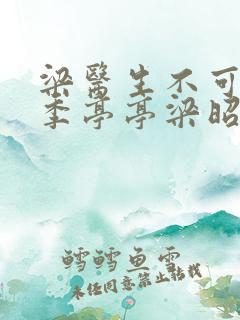 梁醫生不可
季亭亭梁昭
鳕鳕鱼雪
未经同意禁止转载